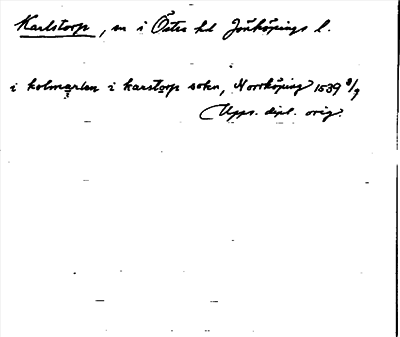 Karlstorp, sn i Östra hd Jönköpings l.
i kolmarken i karstorp sokn, Norrköping 1539 8/9
Upps. dipl. orig.